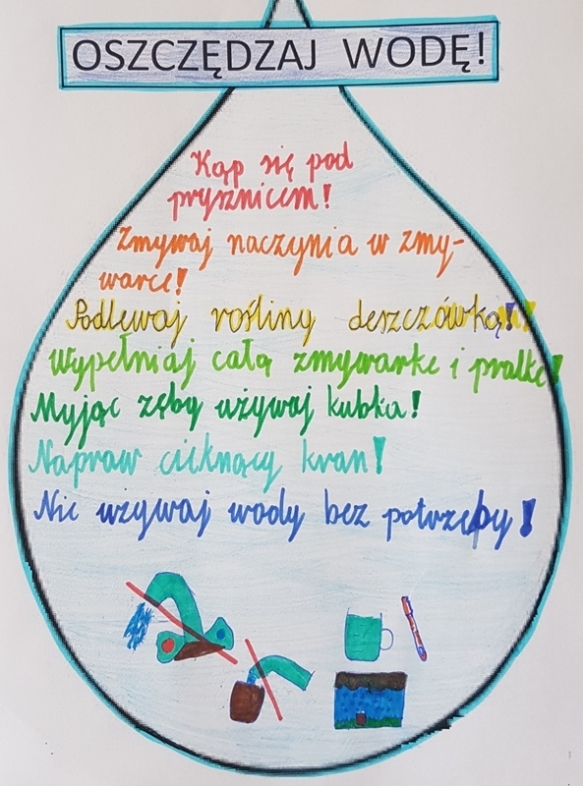 OSZCZĘDZAJ WODĘ!
Kąp się pod
prysznicem!
Zmywaj naczynia w zmy-
warce!
Podlewaj rośliny deszczówką!!
Wypełniaj całą zmywarkę i pralkę!
Myjąc zęby używaj kubka!
Napraw cieknący kran!
Nie używaj wody bez potrzeby!